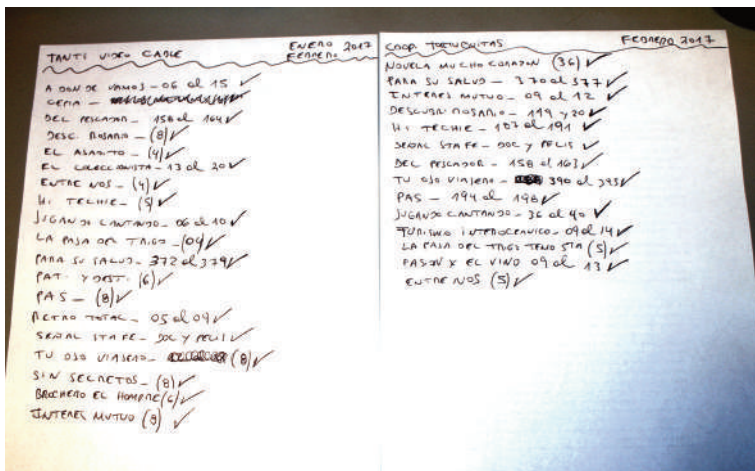 TANTI VIDEO CABLE
ENERO 2017
FEBRERO
A DONDE VAMOS - 06 al 15 ✓
CEPIA -
DEL PESCADOR - 158 al 164 ✓
DESC. ROSARIO - (8) ✓
EL ASADITO - (4) ✓
EL COLECCIONISTA - 13 al 20 ✓
ENTRE NOS - (4) ✓
HI TECHIE - (5) ✓
JUGANDO CANTANDO - 06 al 10 ✓
LA PAJA DEL TRIGO - (04) ✓
PARA SU SALUD - 372 al 379 ✓
PAT. Y DEST. (6) ✓
PAS - (8) ✓
RETRO TOTAL - 05 al 09 ✓
SEÑAL STA FE - DOC Y PELIS ✓
TU OJO VIAJERO - (8) ✓
SIN SECRETOS - (8) ✓
BROCHERO EL HOMBRE (6) ✓
INTERES MUTUO (8) ✓
COOP. TORTUGUITAS
FEBRERO 2017
NOVELA MUCHO CORAZON (36) ✓
PARA SU SALUD - 370 al 377 ✓
INTERES MUTUO - 09 al 12 ✓
DESCUBRI ROSARIO - 119 y 20 ✓
HI TECHIE - 187 al 191 ✓
SEÑAL STA FE - DOC Y PELIS ✓
DEL PESCADOR - 158 al 163 ✓
TU OJO VIAJERO - 390 al 395 ✓
PAS - 194 al 198 ✓
JUGANDO CANTANDO - 36 al 40 ✓
TURISMO INTEROCEANICO - 09 al 14 ✓
LA PAJA DEL TRIGO (5) ✓
PASION X EL VINO 09 al 13 ✓
ENTRE NOS (5) ✓